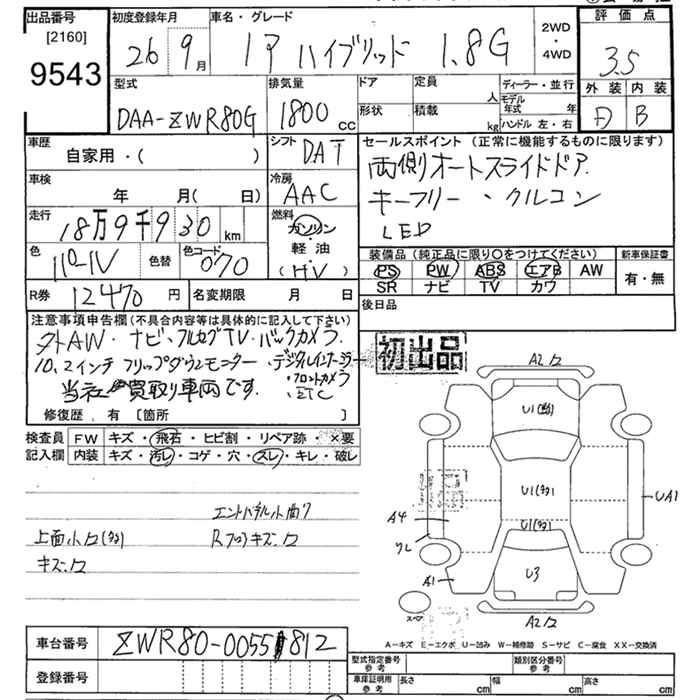 出品番号
[2160]
9543
初度登録年月
26 9月
車名・グレード
ハイブリッド 1.8G
2WD
・
4WD
評価点
3.5
外装 内装
D B
型式
DAA-ZWR80G
排気量
1800 cc
ドア
形状
定員 人
積載 kg
ディーラー・並行
モデル年式 年
ハンドル 左・右
車歴
自家用・( )
シフト
DAT
セールスポイント (正常に機能するものに限ります)
両側オートスライドドア
キーフリー・クルコン
LED
車検
年 月( 日)
冷房
AAC
走行
18万9千930 km
燃料
ガソリン
・
軽・油
(HV)
色
色替
色コード
070
装備品 (純正品に限り○をつけてください)
PS PW ABS エアB AW
SR ナビ TV カワ
新車保証書
有・無
R券
12470 円
名変期限 月 日
後日品
注意事項申告欄 (不具合内容等は具体的に記入して下さい)
外AW・ナビ・フルセグTV・バックカメラ
10.2インチフリップダウンモニター・デジタルインナーミラー
・フロントカメラ
当社買取り車両です。
・ETC
修復歴・有 [箇所 ]
初出品
検査員
記入欄
FW キズ・飛石・ヒビ割・リペア跡・×要
内装 キズ・汚レ・コゲ・穴・スレ・キレ・破レ
上面小
キズ
A2
U1
U1
U1
U3
UA1
A4
A1
スペア
A2
A-キズ E-エクボ U-凹み W-補修跡 S-サビ C-腐食 XX-交換済
車台番号
ZWR80-0055812
登録番号
型式指定番号
参考
類別区分番号
参考
車庫証明用
参考
長さ cm
幅 cm
高さ cm